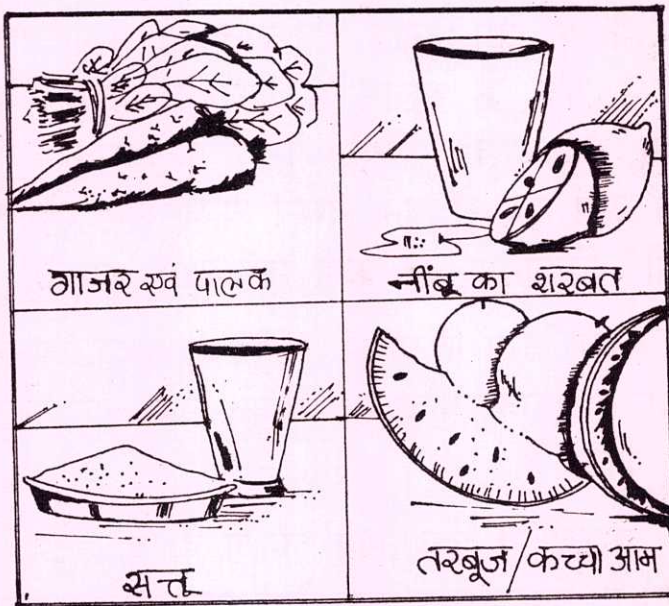 गाजर एवं पालक
नींबू का शरबत
सत्तू
तरबूज/कच्चा आम